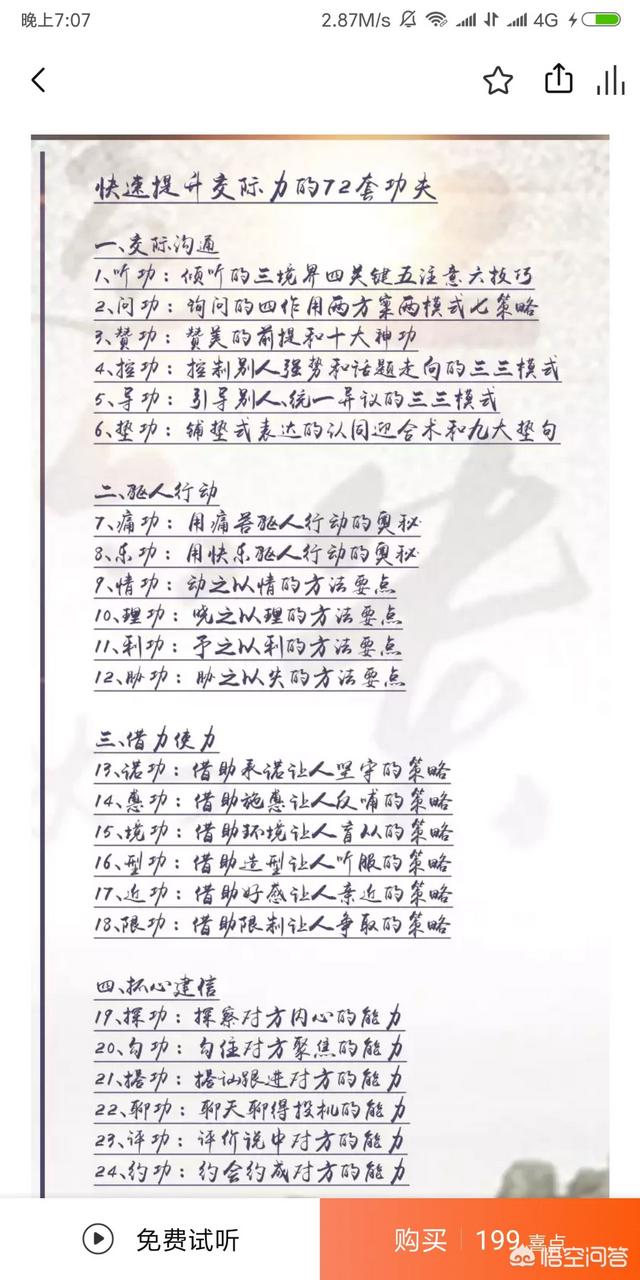 晚上7:07
2.87M/s 4G
快速提升交际力的72套功夫
一、交际沟通
1、听功：倾听的三境界四关键五注意六技巧
2、问功：询问的四作用两方案两模式七策略
3、赞功：赞美的前提和十大神功
4、控功：控制别人强势和话题走向的三三模式
5、导功：引导别人、统一异议的三三模式
6、垫功：铺垫式表达的认同迎合术和九大垫句
二、驱人行动
7、痛功：用痛苦驱人行动的奥秘
8、乐功：用快乐驱人行动的奥秘
9、情功：动之以情的方法要点
10、理功：晓之以理的方法要点
11、利功：予之以利的方法要点
12、胁功：胁之以失的方法要点
三、借力使力
13、诺功：借助承诺让人坚守的策略
14、惠功：借助施惠让人反哺的策略
15、境功：借助环境让人盲从的策略
16、型功：借助造型让人听服的策略
17、近功：借助好感让人亲近的策略
18、限功：借助限制让人争取的策略
四、抓心建信
19、探功：探察对方内心的能力
20、勾功：勾住对方聚焦的能力
21、搭功：搭讪跟进对方的能力
22、聊功：聊天聊得投机的能力
23、评功：评价说中对方的能力
24、约功：约会约成对方的能力
免费试听
购买 199 喜点
悟空问答